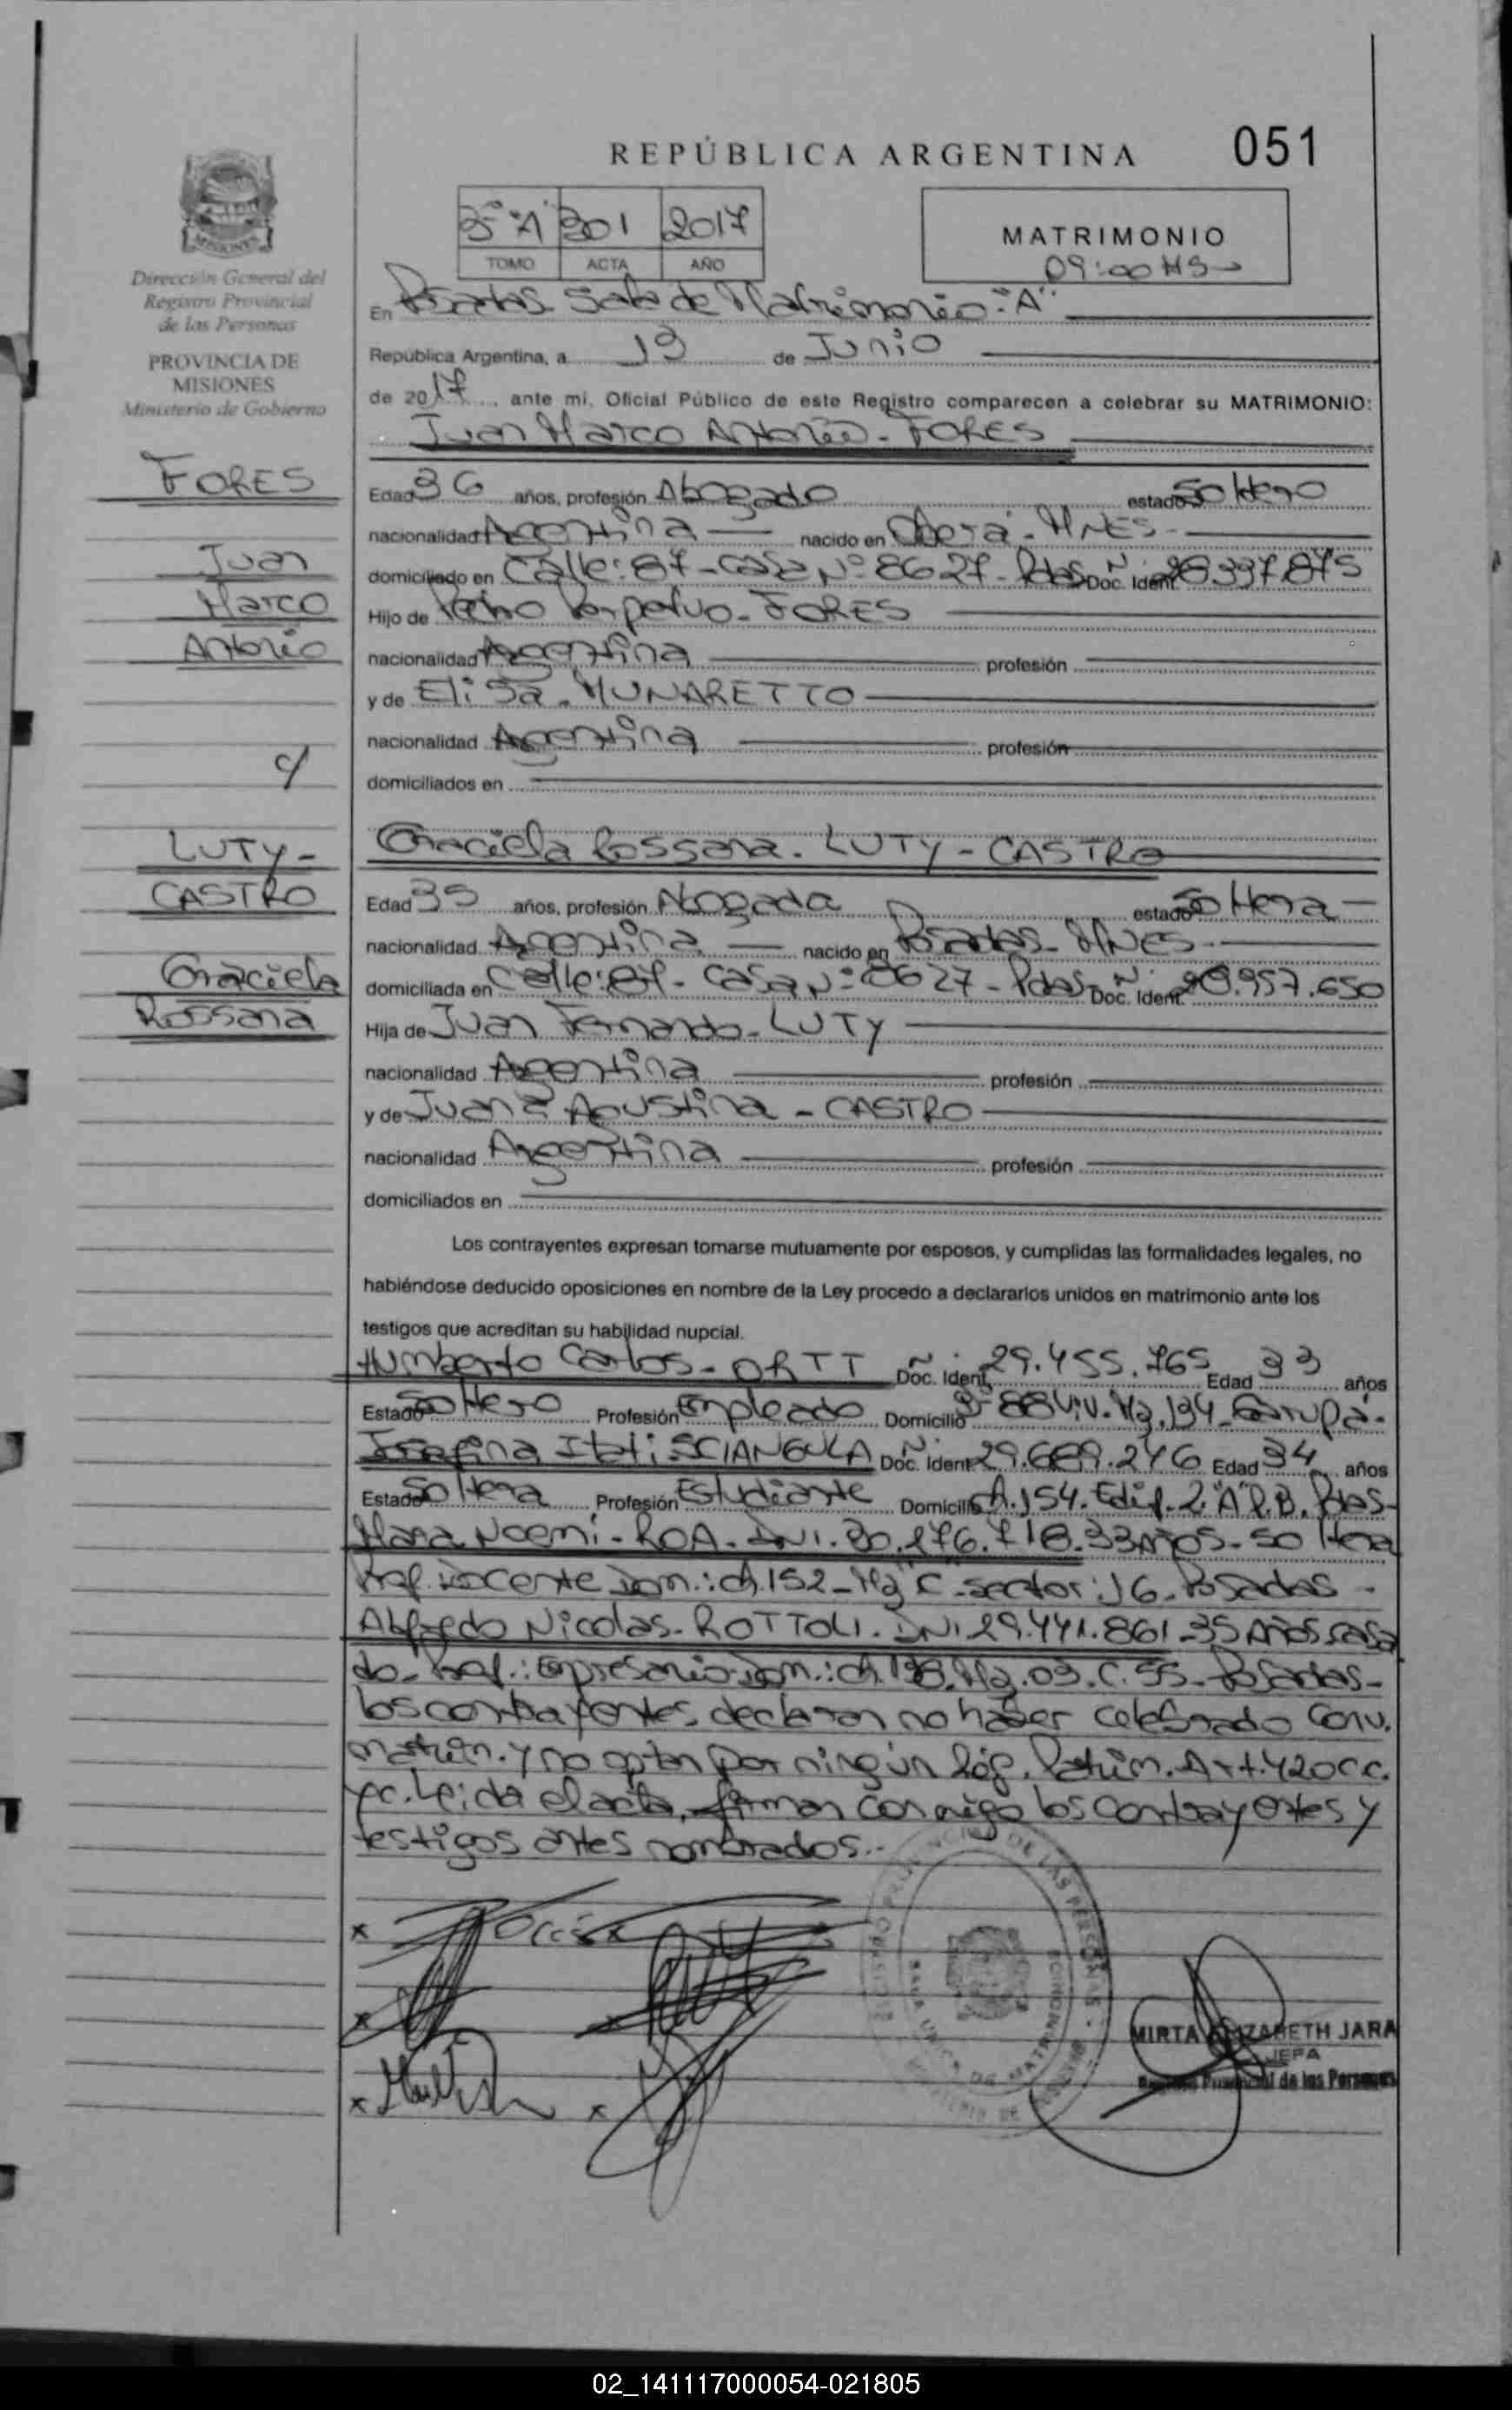 REPÚBLICA ARGENTINA
051
3º "A" 301 2017
TOMO ACTA AÑO
MATRIMONIO
09:00 HS
MISIONES
Dirección General del
Registro Provincial
de las Personas
PROVINCIA DE
MISIONES
Ministerio de Gobierno
En Posadas Sala de Matrimonio "A"
República Argentina, a 19 de Junio
de 2017, ante mi, Oficial Público de este Registro comparecen a celebrar su MATRIMONIO:
Juan Marco Antonio - FORES
FORES
Juan
Marco
Antonio
Edad 36 años, profesión Abogado estado Soltero
nacionalidad Argentina nacido en Oberá - MNES
domiciliado en Calle: 87 - Casa Nº 8627 - Pdas Doc. Ident. 28.397.875
Hijo de Pedro Perpetuo - FORES
nacionalidad Argentina profesión
y de Elisa - MUNARETTO
nacionalidad Argentina profesión
domiciliados en
c/
LUTY -
CASTRO
Graciela
Rossana
Graciela Rossana - LUTY - CASTRO
Edad 35 años, profesión Abogada estado Soltera
nacionalidad Argentina nacido en Posadas - MNES
domiciliada en Calle: 87 - Casa Nº 8627 - Pdas Doc. Ident. 28.957.650
Hija de Juan Fernando - LUTY
nacionalidad Argentina profesión
y de Juana Agustina - CASTRO
nacionalidad Argentina profesión
domiciliados en
Los contrayentes expresan tomarse mutuamente por esposos, y cumplidas las formalidades legales, no
habiéndose deducido oposiciones en nombre de la Ley procedo a declararlos unidos en matrimonio ante los
testigos que acreditan su habilidad nupcial.
Humberto Carlos - ORTT Doc. Ident. 29.455.765 Edad 33 años
Estado Soltero Profesión Empleado Domicilio 88 Viv. Mz. 194 - Garupá.
Josefina Itatí SCIANGULA Doc. Ident. 29.689.246 Edad 34 años
Estado Soltera Profesión Estudiante Domicilio Ch. 154. Edif. 2 "A" P.B. Pdas -
Mara Noemi - ROA - DNI. 30.276.718. 33 Años - Soltera
Prof. Docente Dom.: Ch. 152 - Mz "C" - sector: 16 - Posadas -
Alfredo Nicolas - ROTTOLI. DNI. 29.441.861 - 35 Años casa
do - Prof.: Empresario - Dom.: Ch. 198. Mz. 03. C. 55 - Posadas -
los contrayentes, declaran no haber celebrado Conv.
matrim. y no optan por ningún Rég. Patrim. Art. 420 CC.
yc. Leída el acta, firman conmigo los Contrayentes y
testigos antes nombrados..
MIRTA ELIZABETH JARA
JEFA
Registro Provincial de las Personas
02_141117000054-021805